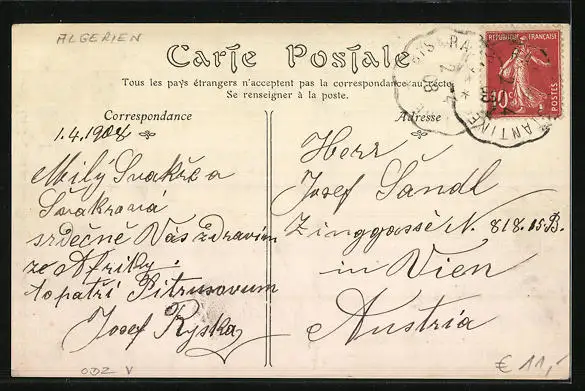 ALGERIEN
Carte Postale
Tous les pays étrangers n'acceptent pas la correspondance au recto
Se renseigner à la poste.
Correspondance
Adresse
RÉPUBLIQUE FRANÇAISE
10c
POSTES
1.4.1908
Milý Švakře a
Švakrová
srdečně Vás zdravím
ze Afriky.
to patří Pitrusovum
Josef Ryska
Herr
Josef Šandl
Zinggasse N. 818. 15.B.
in Wien
Austria
ODZ V
€ 11,-